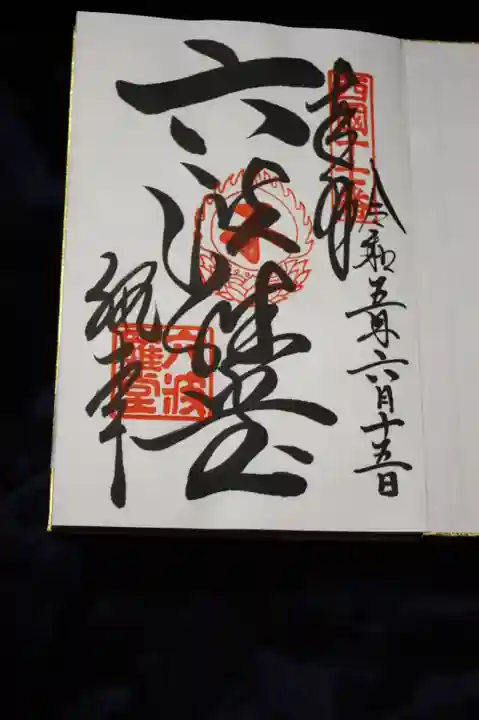 西國十七番
奉拝
令和五年六月十五日
六波羅堂
執事
六波
羅堂